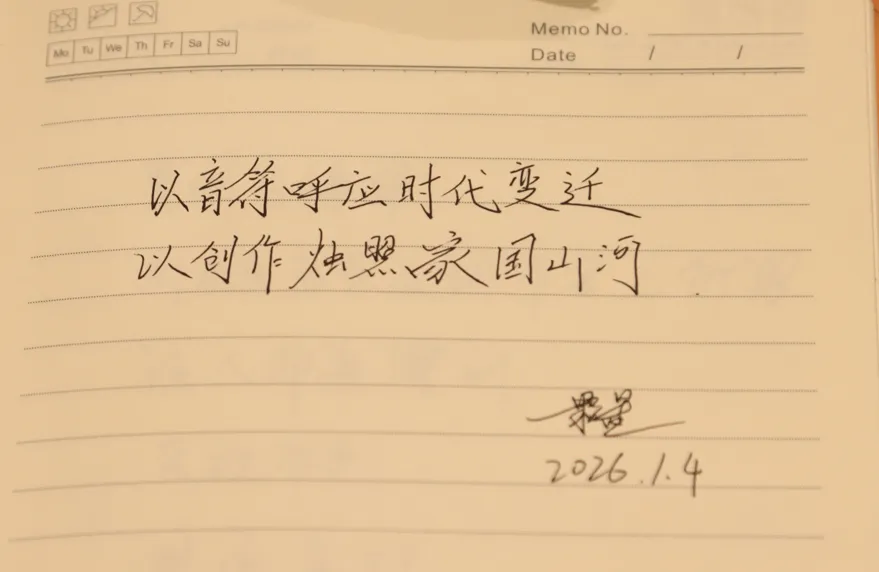 Memo No.
Mo Tu We Th Fr Sa Su
Date / /
以音符呼应时代变迁
以创作烛照家国山河
2026.1.4